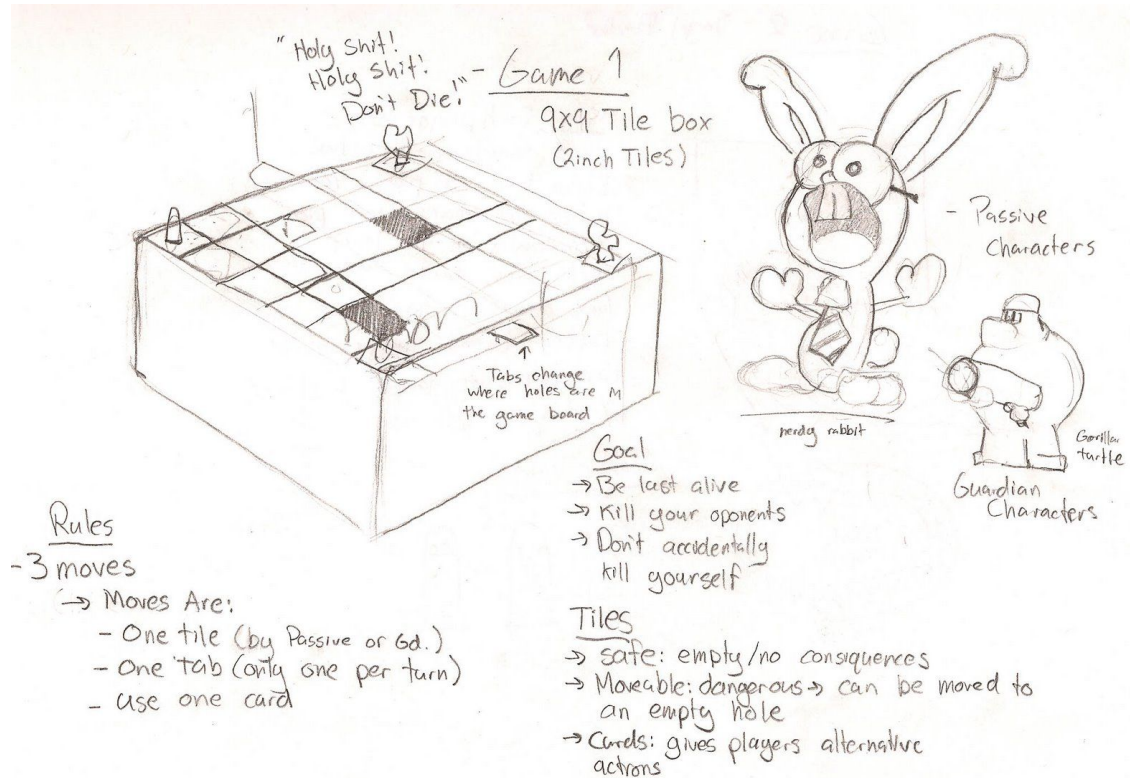 "Holy Shit!
Holy Shit!
Don't Die!" - Game 1
9x9 Tile box
(2inch Tiles)
- Passive
Characters
Tabs change
where holes are
the game board
nerdy rabbit
Gorilla
turtle
Guardian
Characters
Goal
→ Be last alive
→ Kill your oponents
→ Don't accidentally
kill yourself
Rules
- 3 moves
→ Moves Are:
- One tile (by Passive or Gd.)
- One Tab (only one per turn)
- use one card
Tiles
→ safe: empty/no consiquences
→ Moveable: dangerous → can be moved to
an empty hole
→ Cards: gives players alternative
actions